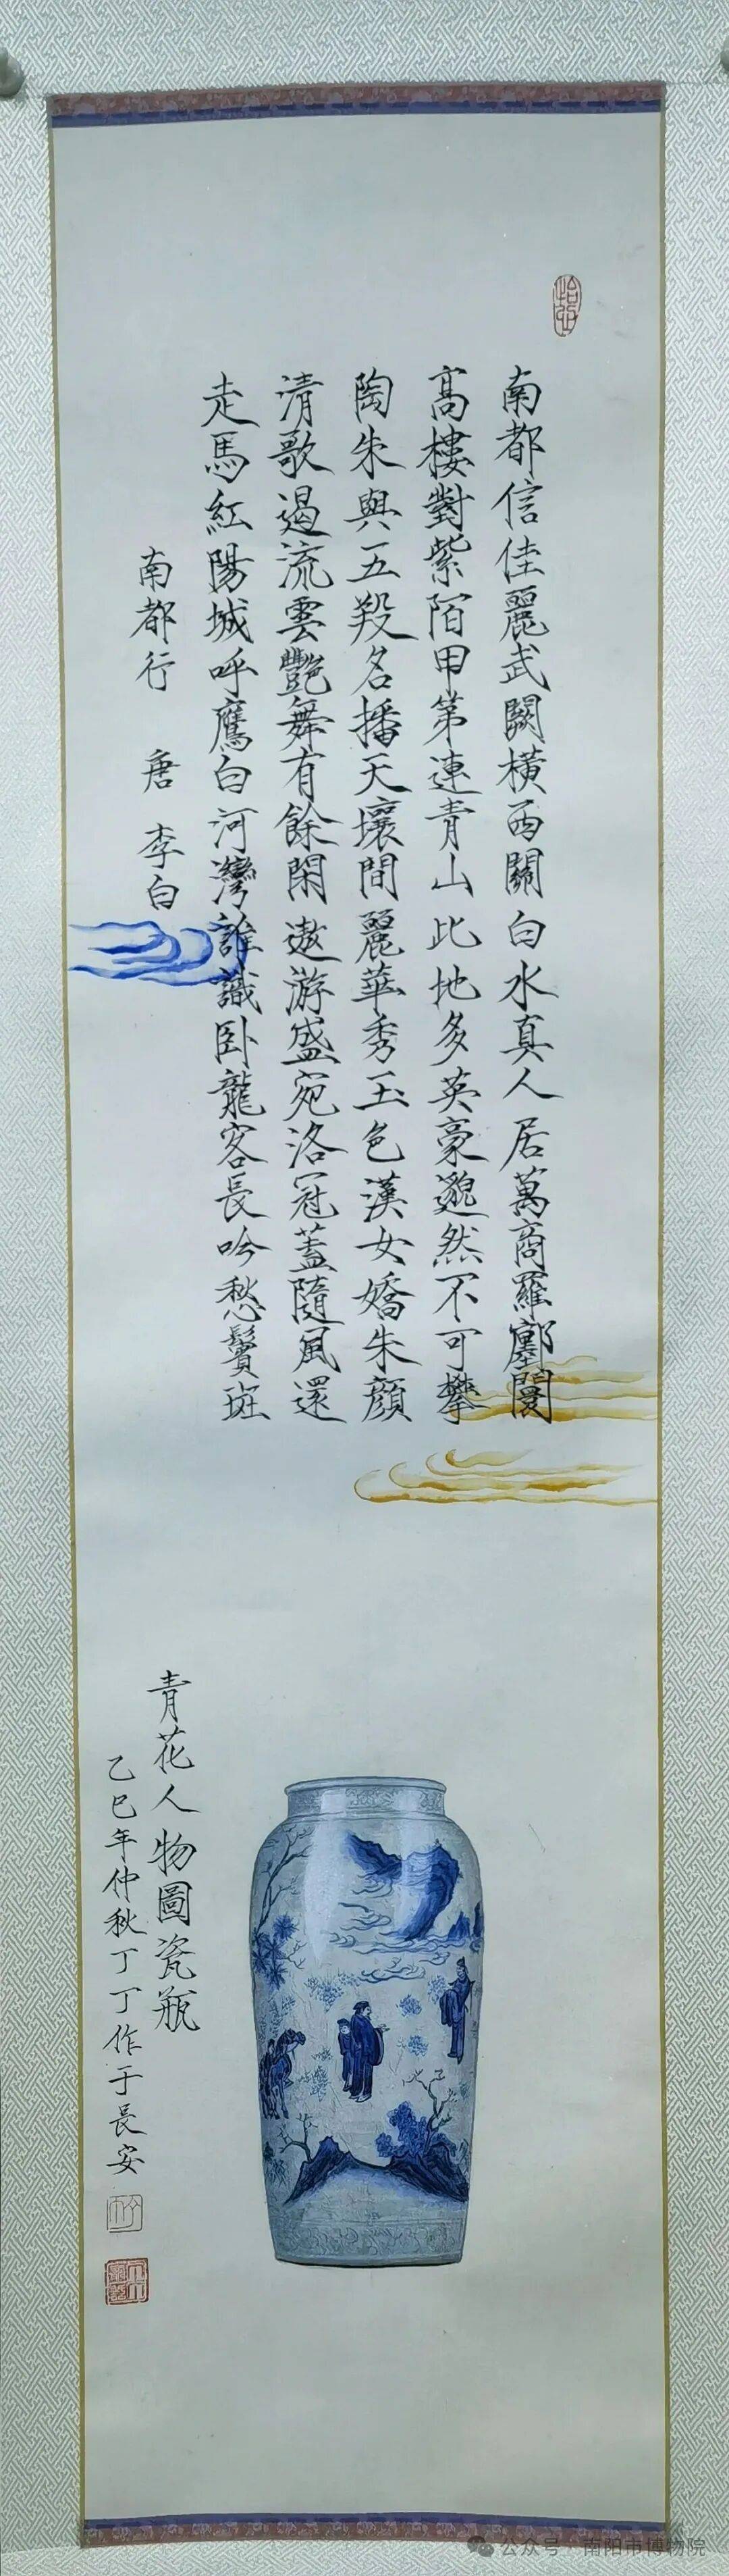 南都信佳麗武闕橫西關白水真人居萬商羅鄽闤
高樓對紫陌甲第連青山此地多英豪邈然不可攀
陶朱與五羖名播天壤間麗華秀玉色漢女嬌朱顏
清歌遏流雲艷舞有餘閑遨游盛宛洛冠蓋隨風還
走馬紅陽城呼鷹白河灣誰識卧龍客長吟愁鬢斑
南都行 唐 李白
青花人物圖瓷瓶
乙巳年仲秋丁丁作于長安
公众号·南阳市博物院